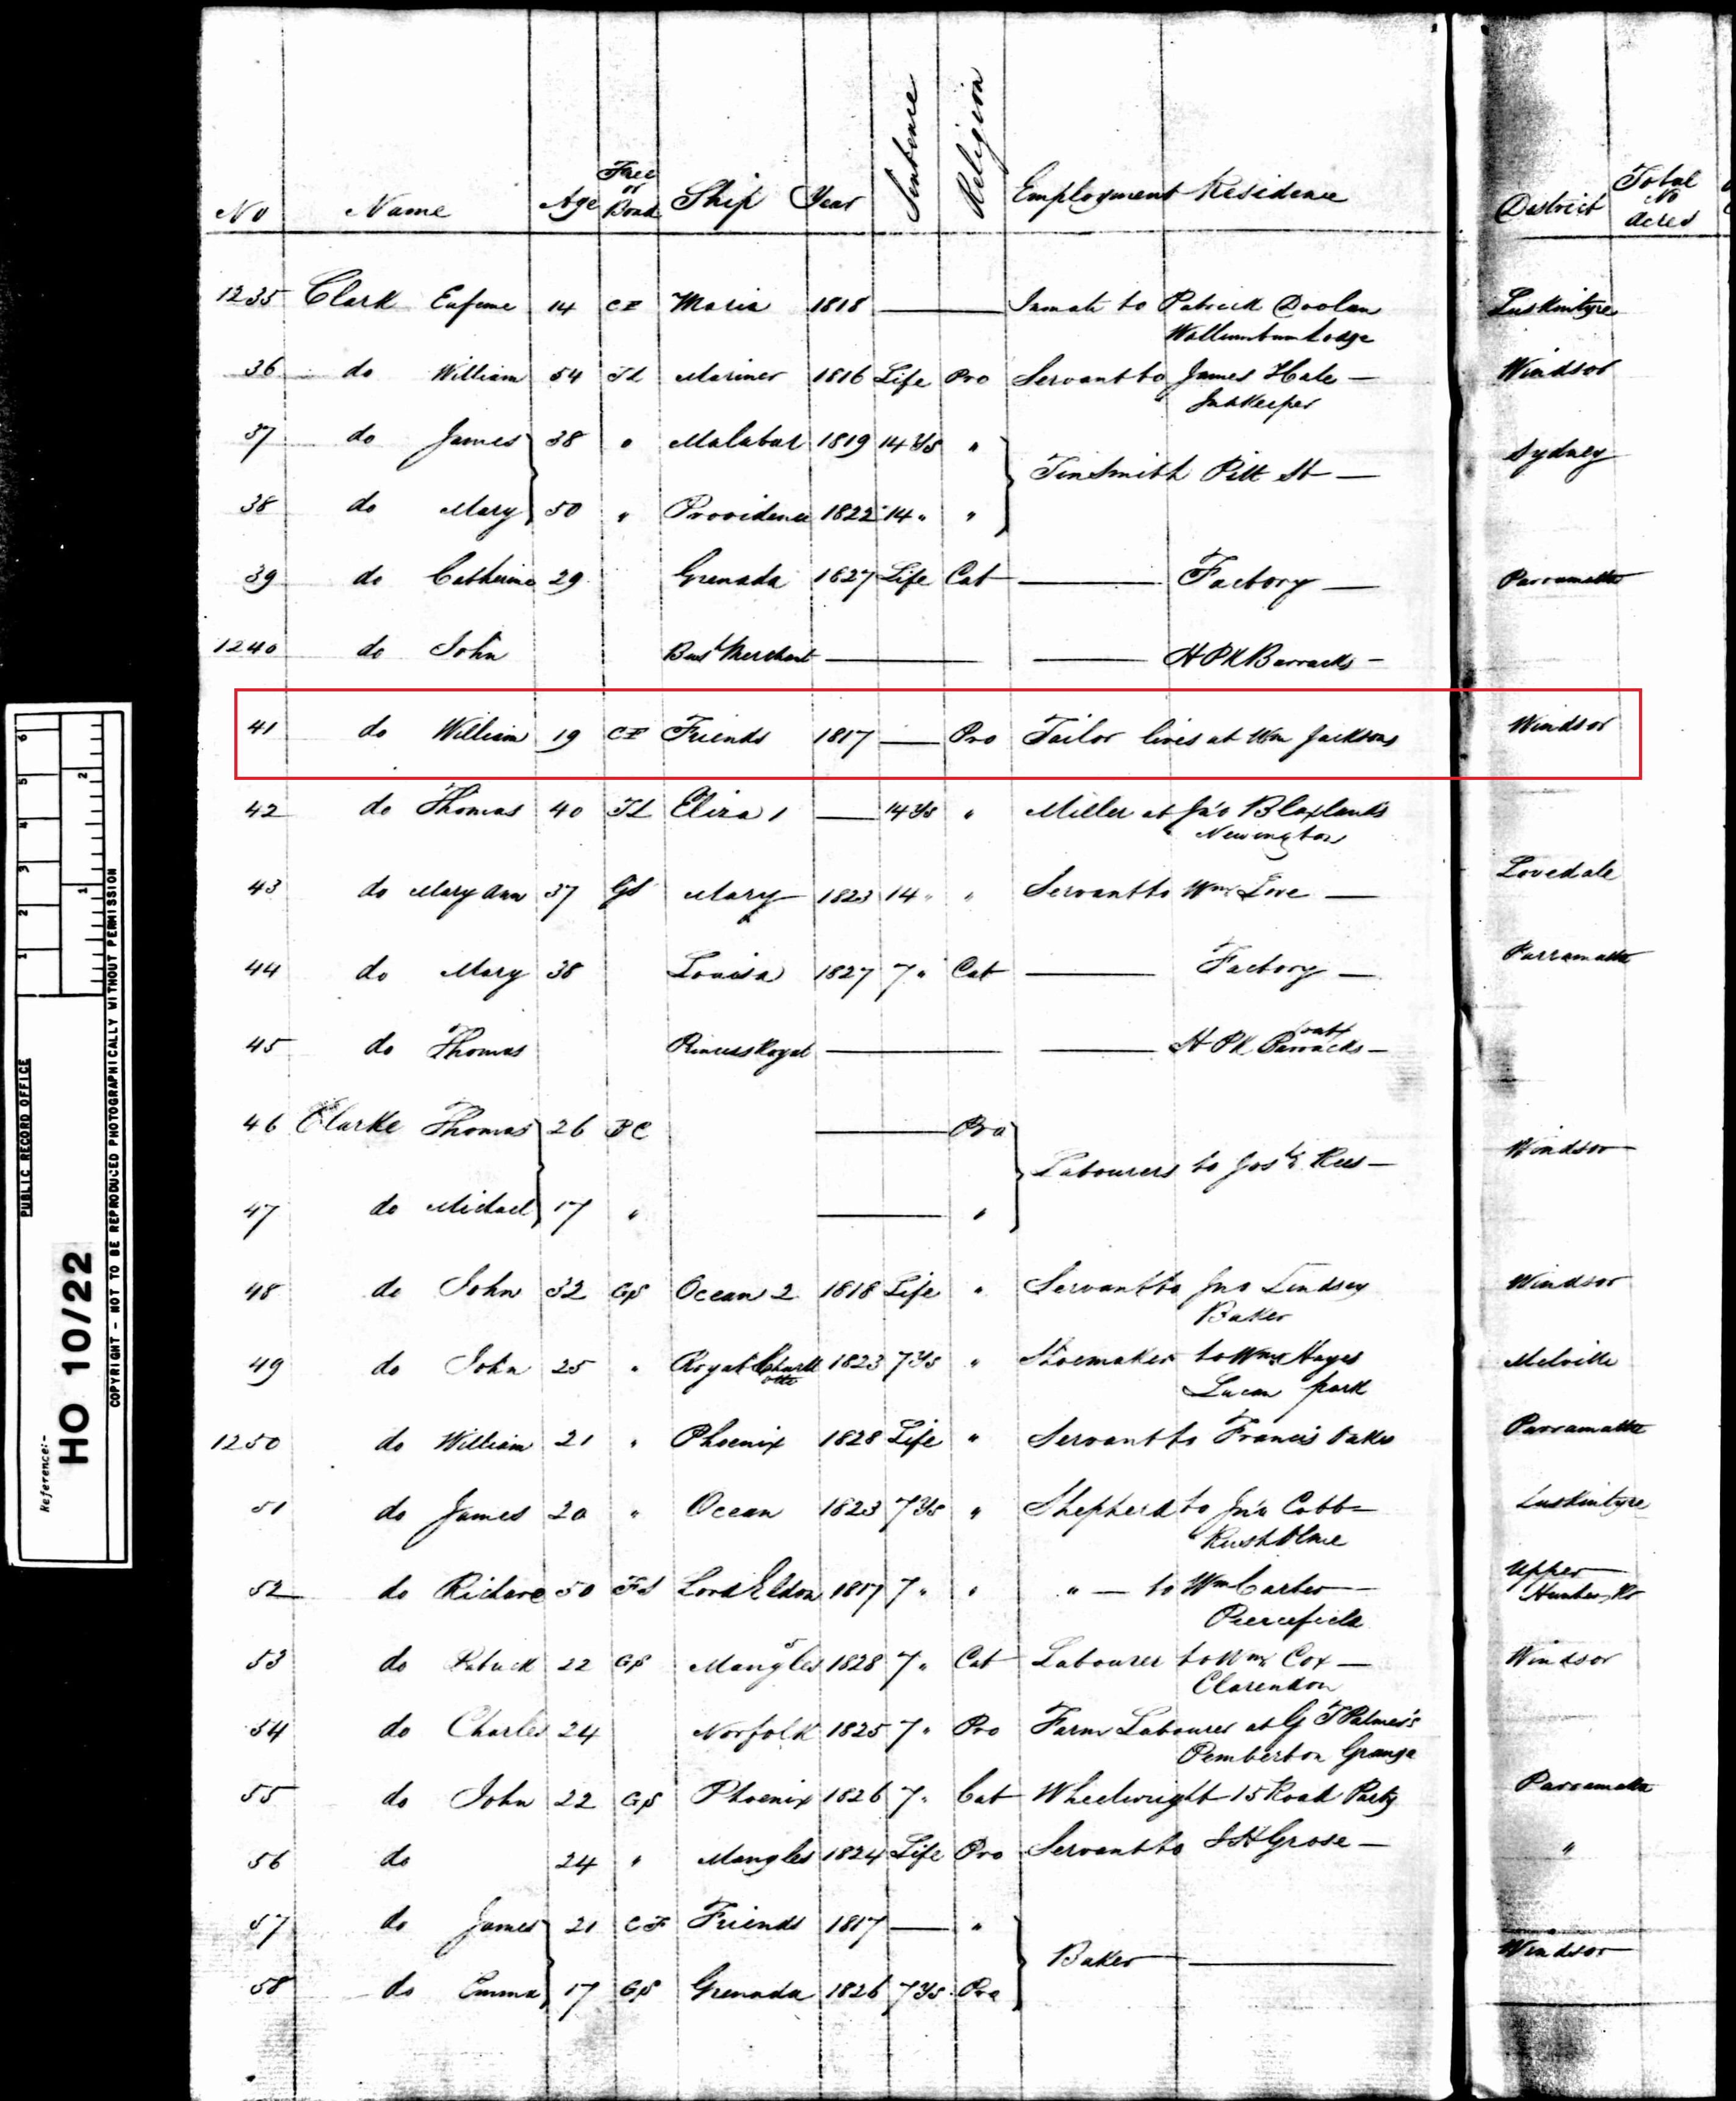 No Name Age Free or Bond Ship Year Sentence Religion Employment Residence District Total No Acres
1235 Clark Eufeme 14 CF Maria 1818 — Inmate to Patrick Doolan Luskintyre
Lodge
36 do William 54 TL Mariner 1816 Life Pro Servant to James Hale — Windsor
Innkeeper
37 do James 38 " Malabar 1819 14 Ys " Sydney
TinSmith Pitt St —
38 do Mary 50 " Providence 1822 14 " "
39 do Catherine 29 Grenada 1827 Life Cat — Factory — Parramatta
1240 do John Merchant — — H P K Barracks —
41 do William 19 CF Friends 1817 — Pro Tailor lives at Wm Jacksons Windsor
42 do Thomas 40 TL Eliza 1 — 14 Ys " Miller at Jno Blaxlands
Newington
43 do Mary Ann 37 GS Mary 1823 14 " " Servant to Wm Love — Lovedale
44 do Mary 38 Louisa 1827 7 " Cat — Factory — Parramatta
45 do Thomas Princess Royal — — H P K Barracks —
46 Clarke Thomas 26 BC — Pro
Labourers to Rees — Windsor
47 do Michael 17 " — "
48 do John 32 GS Ocean 2 1818 Life " Servant to Jno Lindsey Windsor
Baker
49 do John 25 " Royal Charlotte 1823 7 Ys " Shoemaker to Wm Hayes Melville
park
1250 do William 21 " Phoenix 1828 Life " Servant to Francis Oakes Parramatta
51 do James 20 " Ocean 1823 7 Ys " Shepherd to Jno Cobb — Luskintyre
Rusholme
52 do Richard 50 FS Lord Eldon 1817 7 " " " — to Wm Carter — Upper
Piercefield Hunters Rr
53 do Patrick 22 GS Mangles 5 1828 7 " Cat Labourer to Wm Cox — Windsor
Clarendon
54 do Charles 24 Norfolk 1825 7 " Pro Farm Labourer at G T Palmer's
Pemberton Grange
55 do John 22 GS Phoenix 1826 7 " Cat Wheelwright 15 Road Party Parramatta
56 do 24 " Mangles 1824 Life Pro Servant to J H Grose — "
57 do James 21 CF Friends 1817 — "
Baker — Windsor
58 do Emma 17 GS Grenada 1826 7 Ys Pro
6 5 4 3 2 1
2 1
PUBLIC RECORD OFFICE
Reference:-
HO 10/22
COPYRIGHT - NOT TO BE REPRODUCED PHOTOGRAPHICALLY WITHOUT PERMISSION